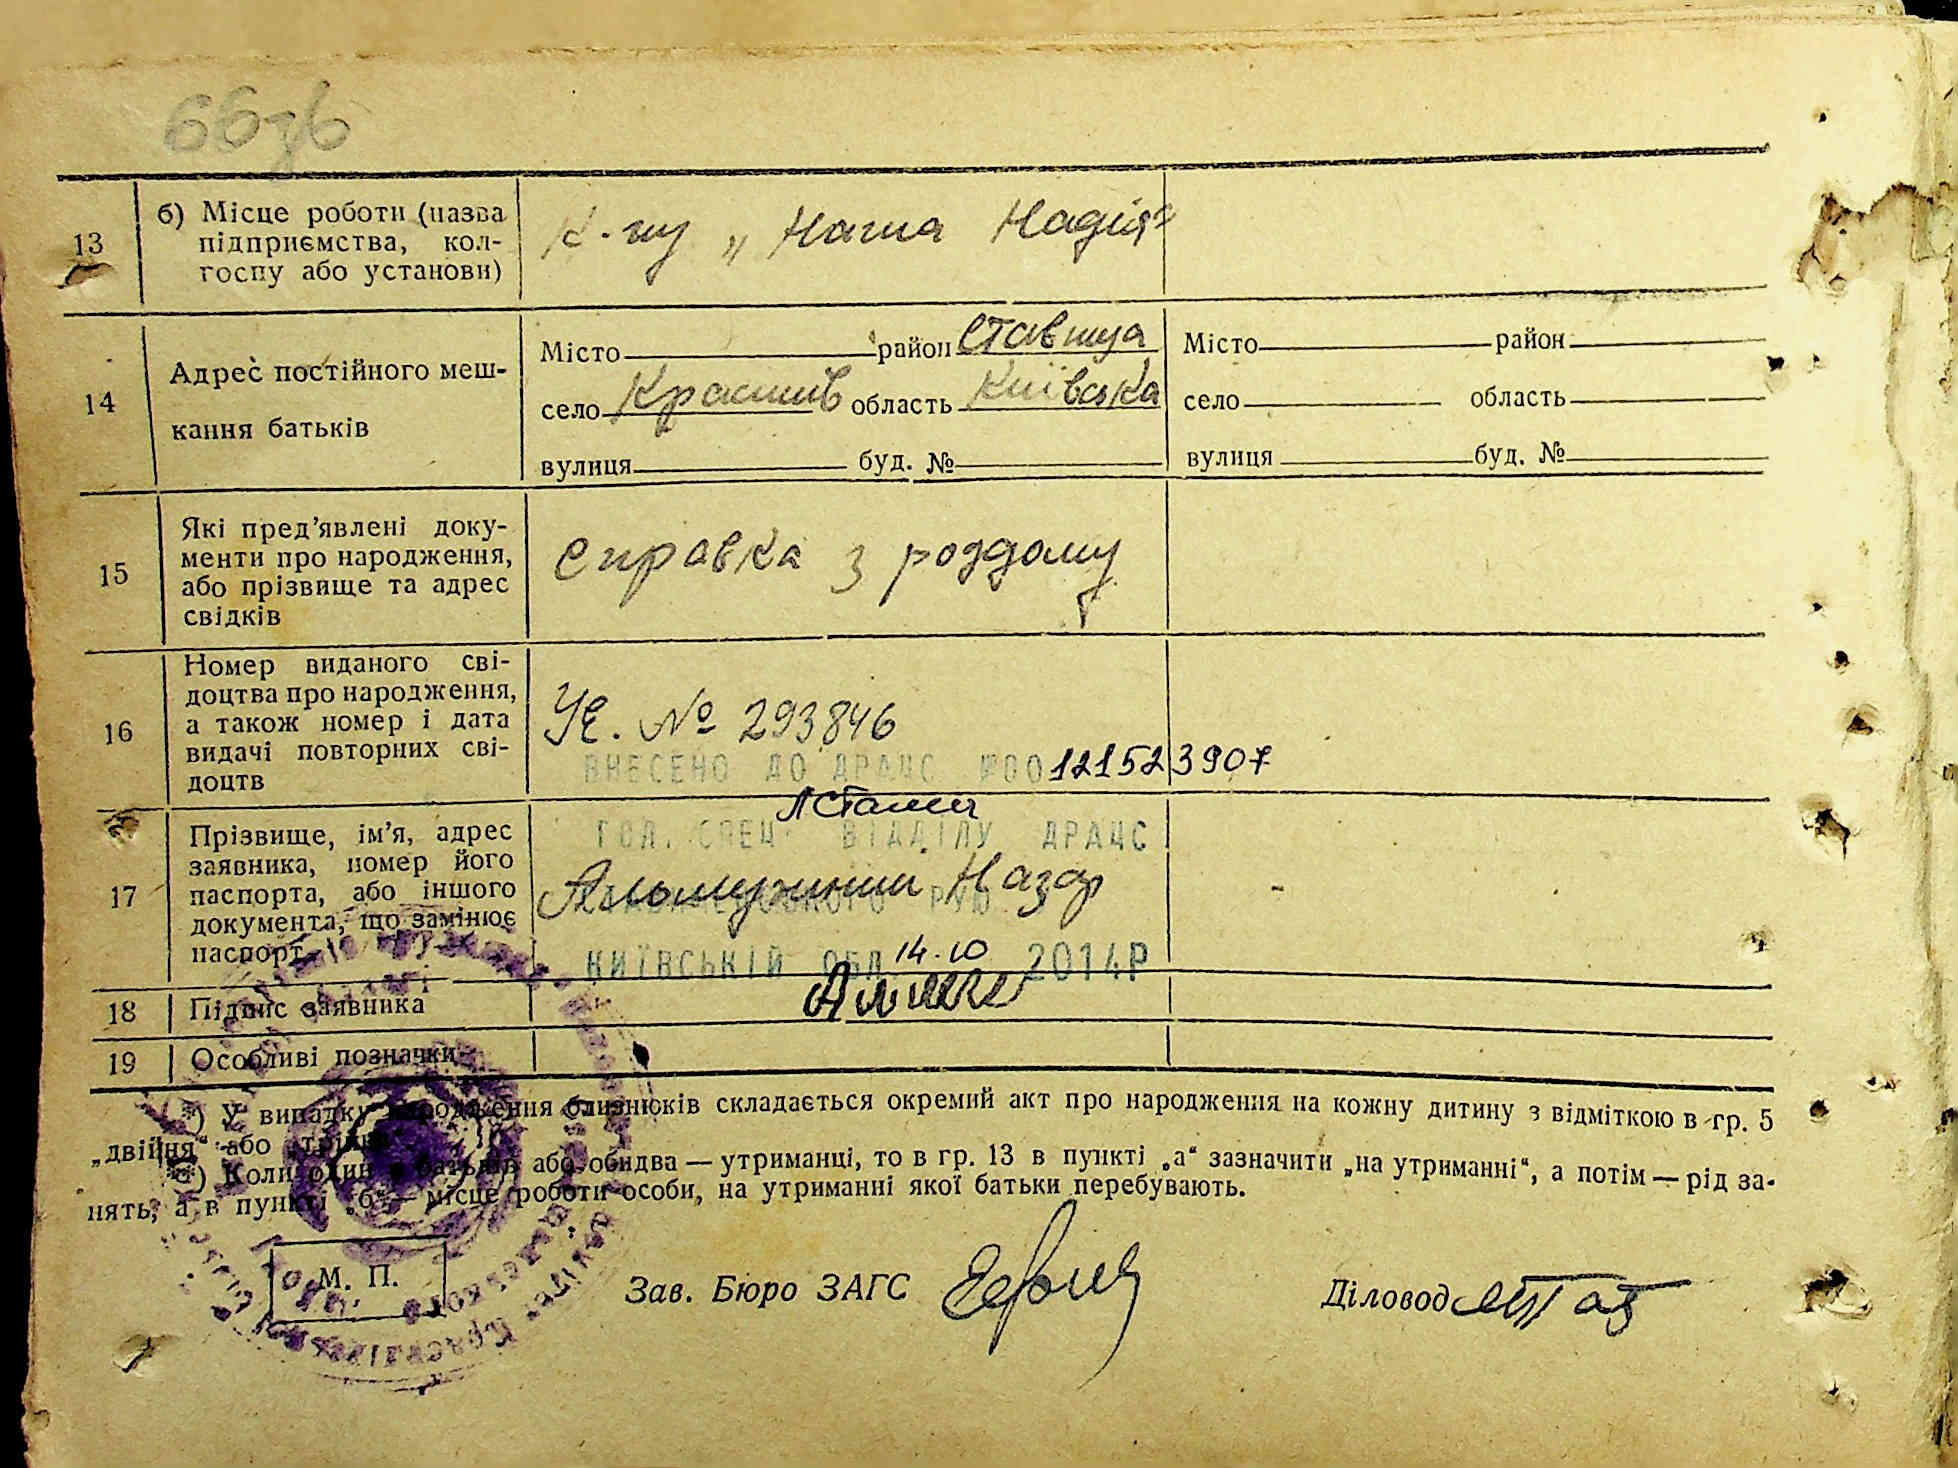 13 б) Місце роботи (назва
підприємства, кол-
госпу або установи)
К-пу „Наша Надія“
14 Адрес постійного меш-
кання батьків
Місто район Ставища
село Красилів область Київська
вулиця буд. №
Місто район
село область
вулиця буд. №
15 Які пред’явлені доку-
менти про народження,
або прізвище та адрес
свідків
Справка з роддому
16 Номер виданого сві-
доцтва про народження,
а також номер і дата
видачі повторних сві-
доцтв
УЄ. № 293846
ВНЕСЕНО ДО ДРАЦС №00121523907
17 Прізвище, ім’я, адрес
заявника, номер його
паспорта, або іншого
документа, що замінює
паспорт
ГОЛ. СПЕЦ ВІДДІЛУ ДРАЦС
Назар
РУЮ
КИЇВСЬКІЙ ОБЛ. 14.10 2014Р
18 Підпис заявника
19 Особливі позначки
*) У випадку народження близнюків складається окремий акт про народження на кожну дитину з відміткою в гр. 5
„двійня“ або „трійня“
**) Коли один з батьків або обидва — утриманці, то в гр. 13 в пункті „а“ зазначити „на утриманні“, а потім — рід за-
нять, а в пункті „б“ — місце роботи особи, на утриманні якої батьки перебувають.
М. П.
Зав. Бюро ЗАГС
Діловод